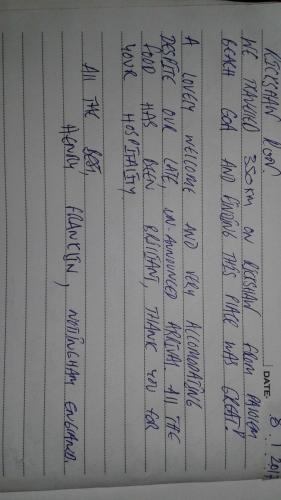 DATE: 8.1.201
RICKSHAW RUN.
WE TRAVELLED 350KM ON RICKSHAW FROM PALOLEM
BEACH GOA AND FINDING THIS PLACE WAS GREAT!
A LOVELY WELCOME AND VERY ACCOMODATING
DESPITE OUR LATE, UN-ANNOUNCED ARRIVAL. ALL THE
FOOD HAS BEEN BRILLIANT, THANK YOU FOR
YOUR HOSPITALITY
All THE BEST,
HENRY FRANKLIN, NOTTINGHAM ENGLAND.